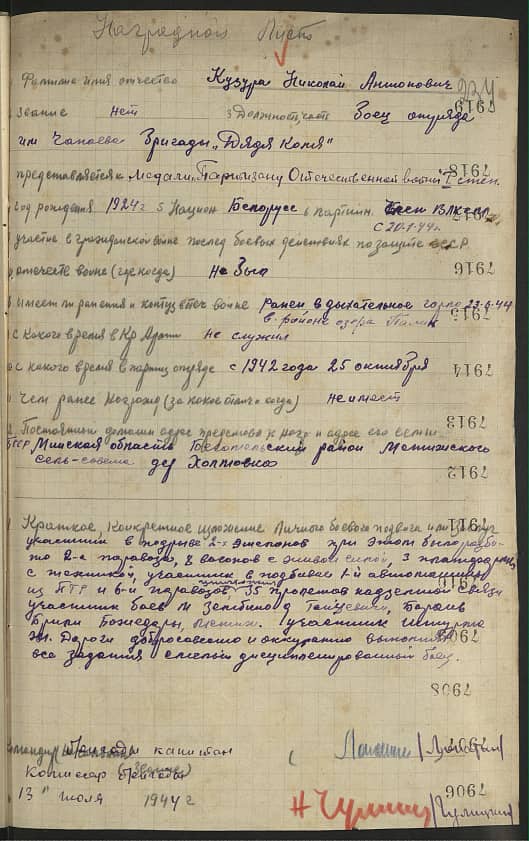 Наградной Лист
Фамилия имя отчество Кузура Николай Антонович
234
7919
звание нет 3 Должность, часть Боец отряда
им Чапаева Бригады „Дядя Коля"
7918
представляется к медали „Партизану Отечественной войны" I степ.
год рождения 1924 г 5 Национ Белорусс 6 партийн. ВЛКСМ
с 20-1-44 г.
участие в гражданской войне послед боевых действиях по защите СССР
7916
отечеств войне (где когда) Не был
имеет ли ранения и контуз в отеч войне ранен в дыхательное горло 23-6-44
7915
в районе озера Палик
с какого время в Кр Армии не служил
с какого время в партиз отряде с 1942 года 25 октября
7914
Чем ранее награжд (за какое отлич и когда) не имеет
7913
Постоянный домашн адрес представл к награ и адрес его семьи
БССР Минская область Бегомльский район Мстижского
сель-совета дер Холмовка
7912
7911
Краткое, конкретное изложение личного боевого подвига или заслуг
участник в подрыве 2-х эшелонов при этом было разби-
то 2-а паровоза, 4 вагонов с живой силой, 3 платформы
с техникой, участник в подбивке 1-й автомашины
из ПТР и 6-и паровозов 35 пролетов надземной связи
участник боев М Зембино д
Участник штурма
Ж. Дороги добросовестно и аккуратно выполнял
все задания смелый дисциплинированный боец.
7908
Командир бригады капитан
7907
Комиссар бригады
13" июля 1944 г
7906